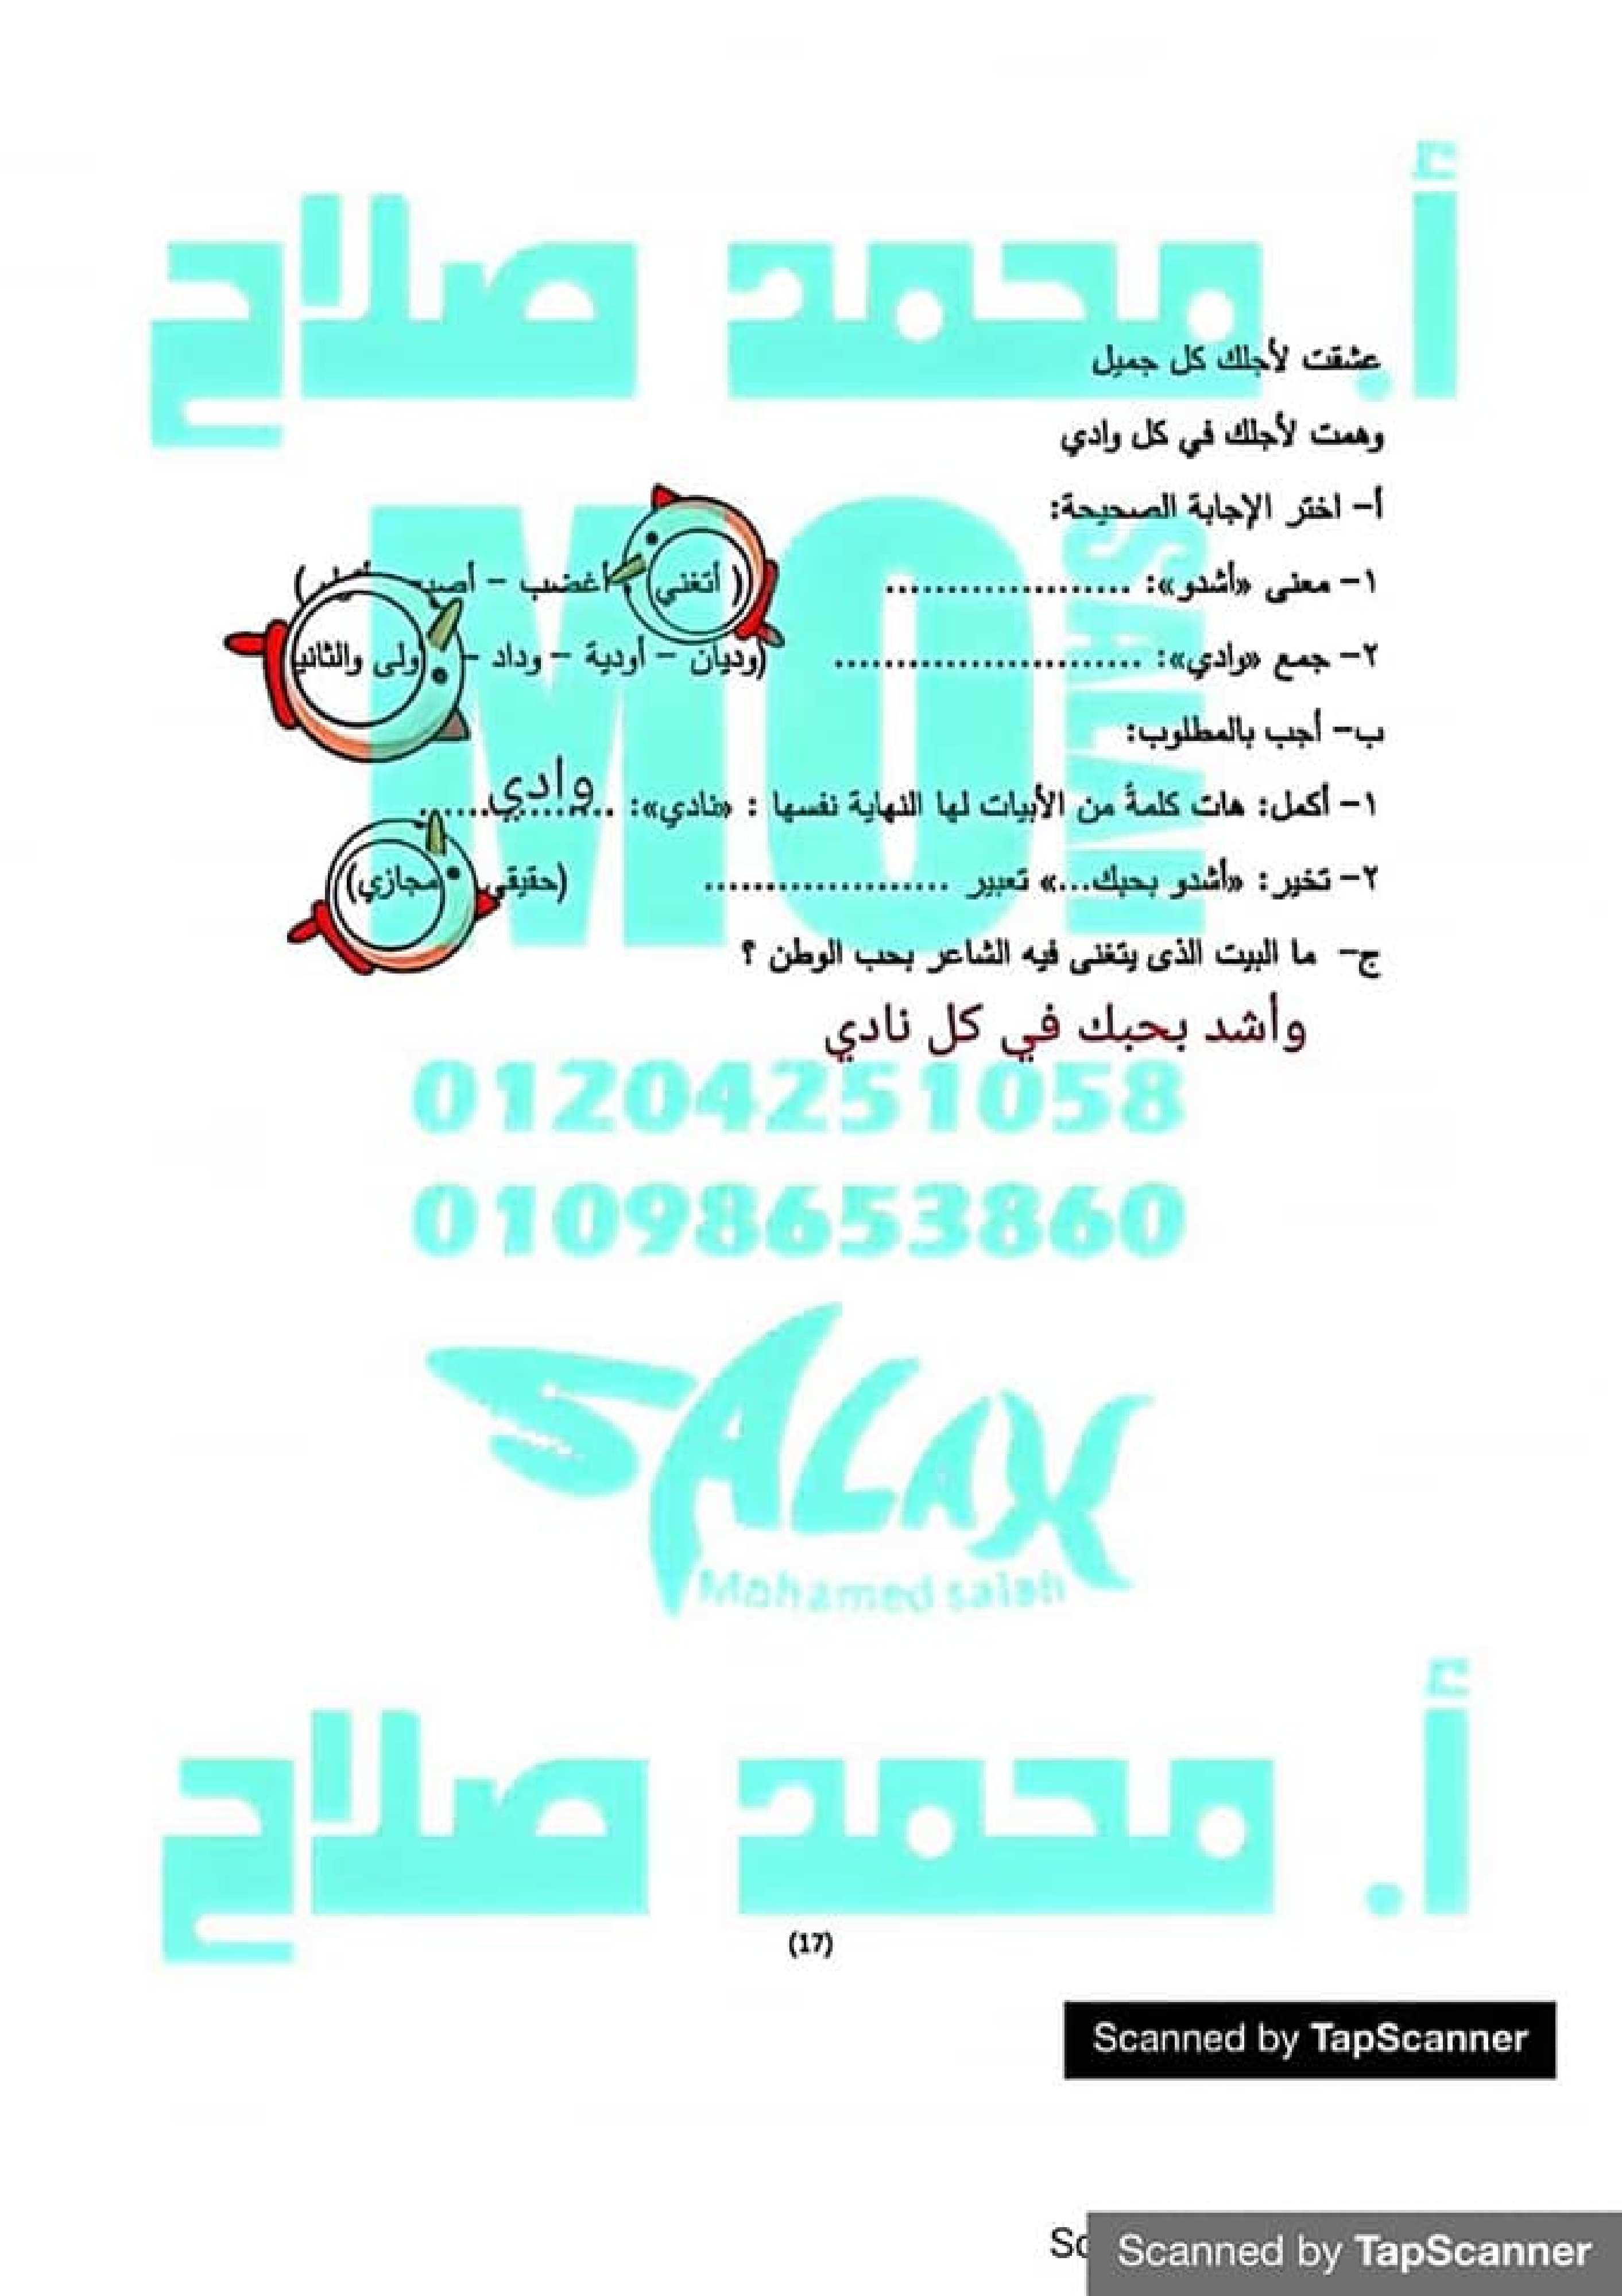 أ. محمد صلاح
عشقت لأجلك كل جميل
وهمت لأجلك في كل وادي
MO
SALAH
أ- اختر الإجابة الصحيحة:
١- معنى «أشدو»: .................... ( أتغني - أغضب -
٢- جمع «وادي»: ......................... (وديان - أودية - وداد - ولى والثاني
ب- أجب بالمطلوب:
١- أكمل: هات كلمةً من الأبيات لها النهاية نفسها : «نادي»: ....وادي....
٢- تخير: «أشدو بحبك...» تعبير .................... (حقيقي مجازي)
ج- ما البيت الذى يتغنى فيه الشاعر بحب الوطن ؟
وأشد بحبك في كل نادي
01204251058
01098653860
SALAH
Mohamed salah
أ. محمد صلاح
(17)
Scanned by TapScanner
Sc
Scanned by TapScanner